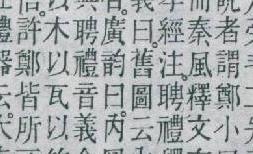 者謂鄭小
秦風釋文
經注聘禮
曰舊圖云
廣韵曰丙
聘禮音義
木以瓦以
許鄭皆所
禮器云